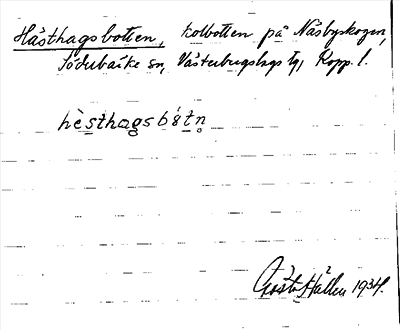 Hästhagsbotten, kolbotten på Näsbyskogen,
Söderbärke sn, Västerbergslags tg, Kopp. l.
hèsthagsbótn
Gösta Hallen 1934.